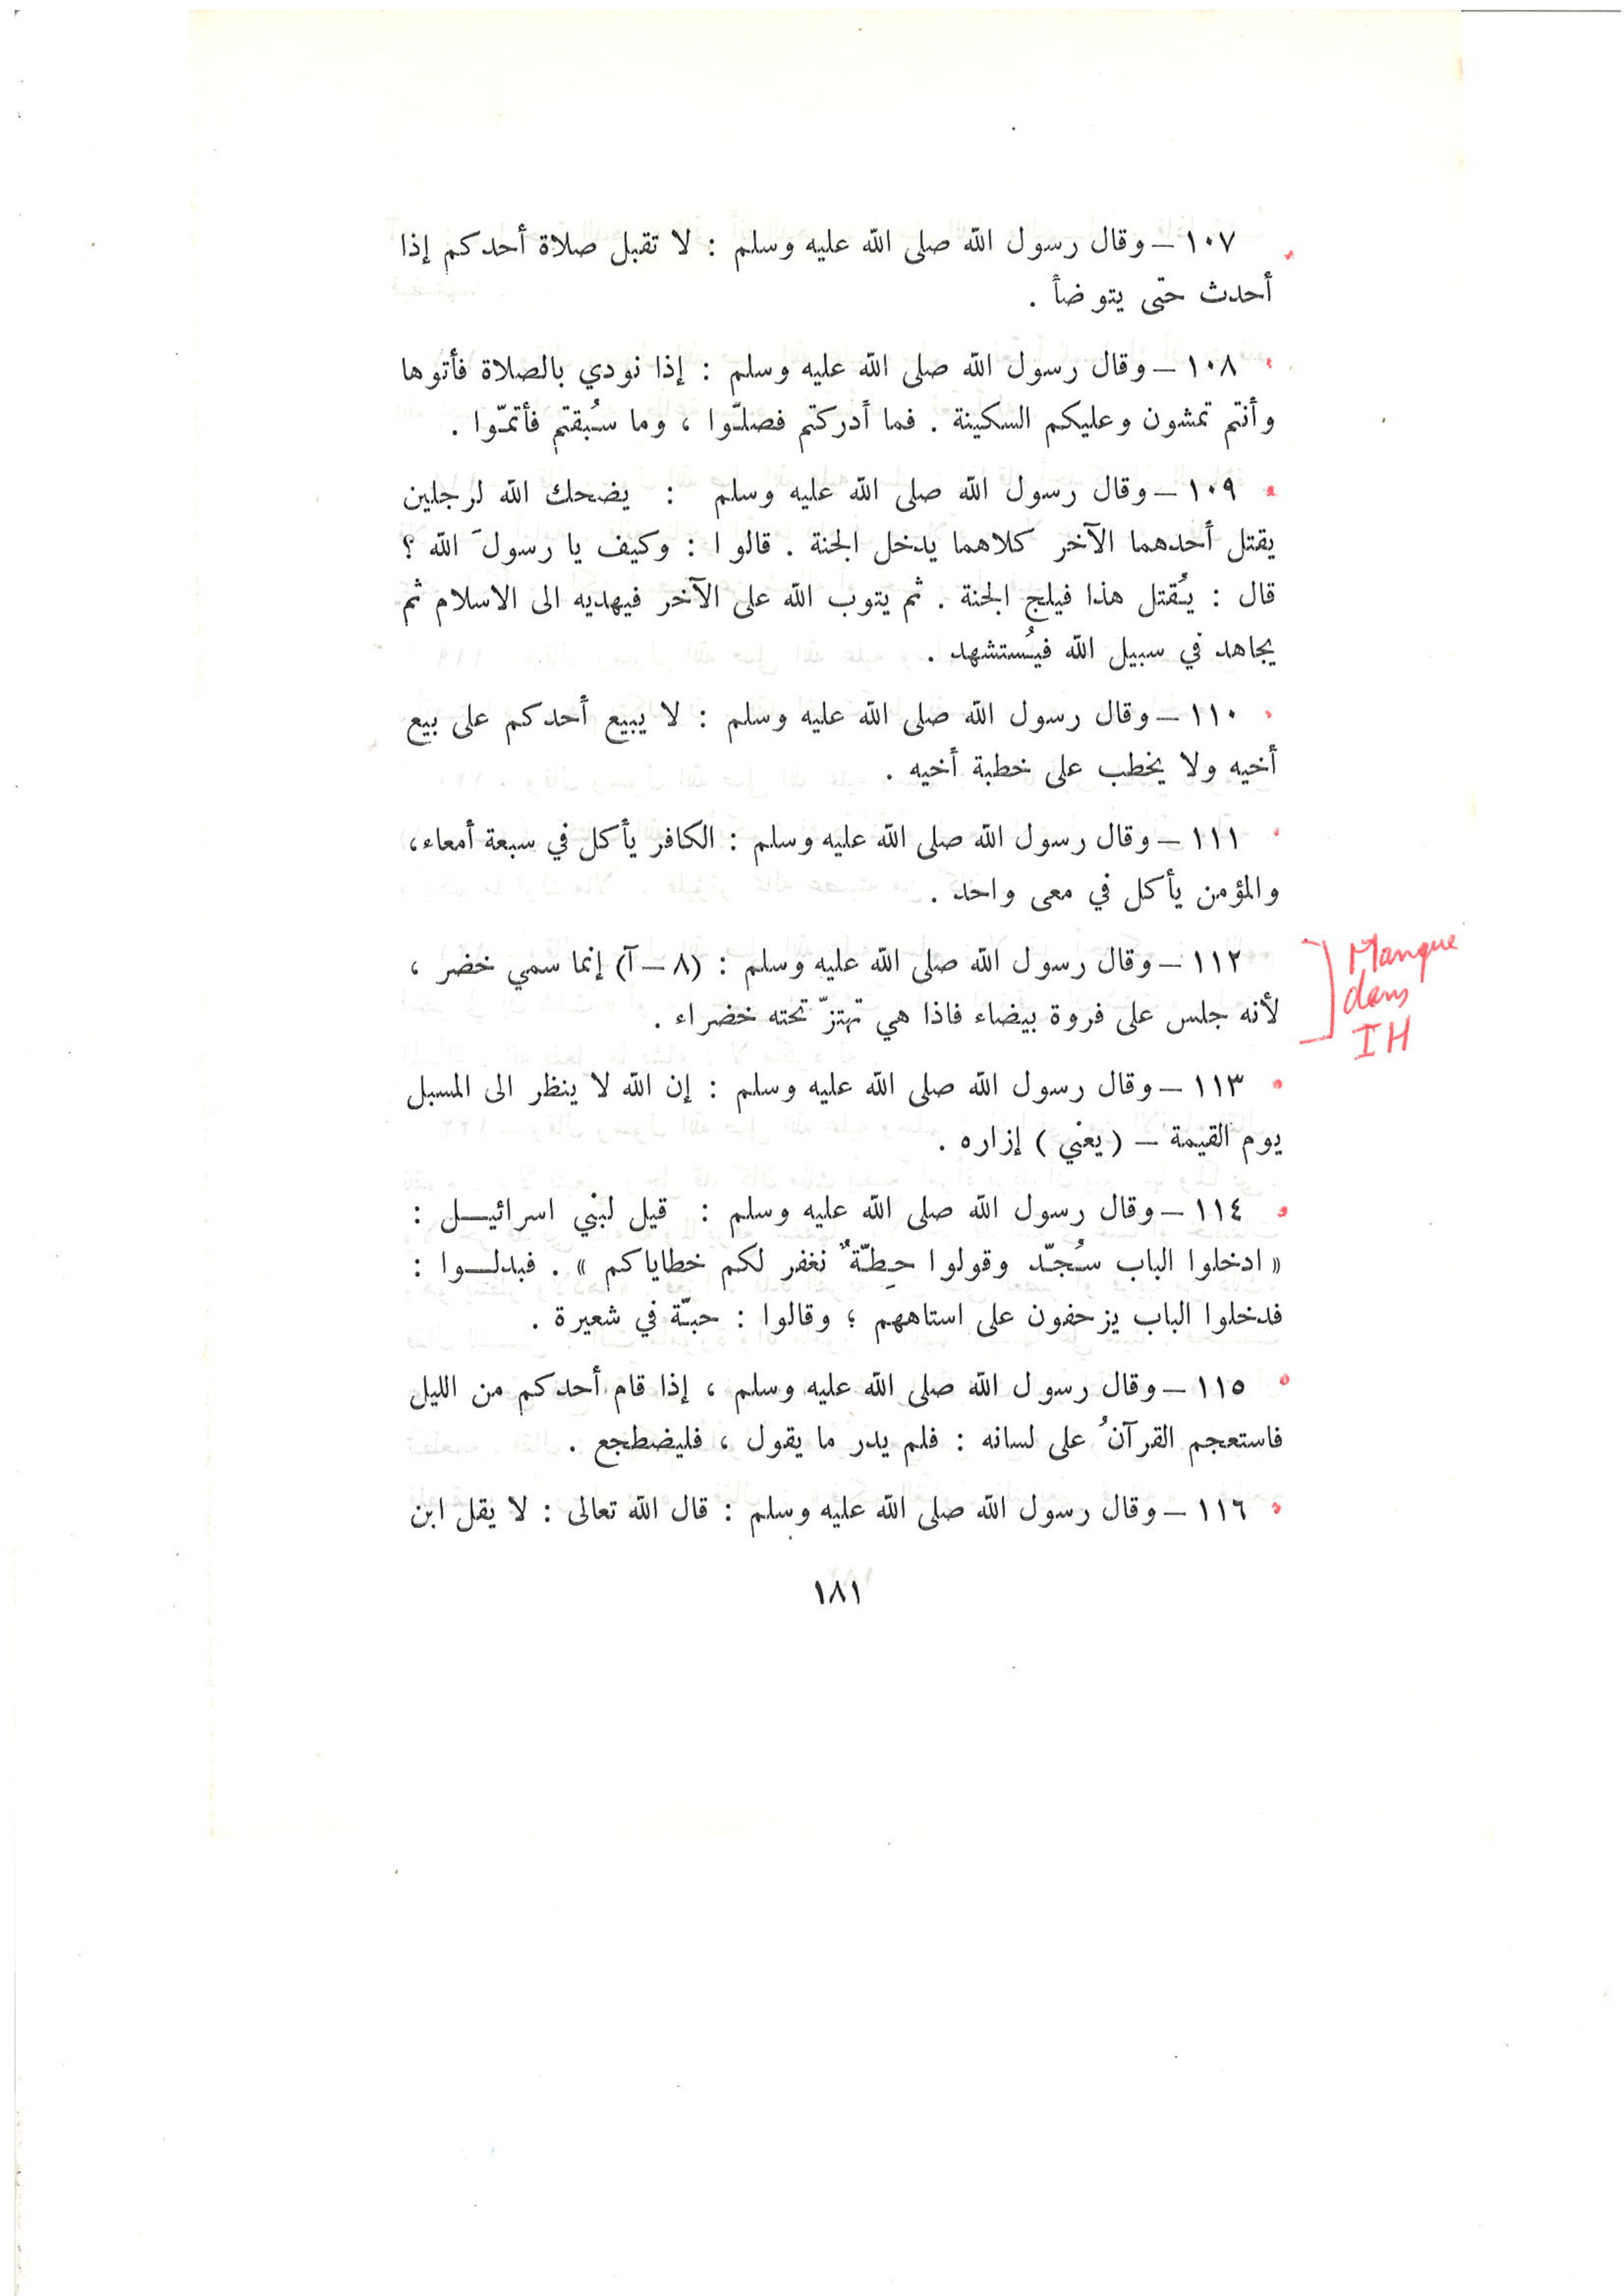 ١٠٧ – وقال رسول الله صلى الله عليه وسلم : لا تقبل صلاة أحدكم إذا
أحدث حتى يتوضأ .
١٠٨ – وقال رسول الله صلى الله عليه وسلم : إذا نودي بالصلاة فأتوها
وأنتم تمشون وعليكم السكينة . فما أدركتم فصلّوا ، وما سُبقتم فأتمّوا .
١٠٩ – وقال رسول الله صلى الله عليه وسلم : يضحك الله لرجلين
يقتل أحدهما الآخر كلاهما يدخل الجنة . قالوا : وكيف يا رسولَ الله ؟
قال : يُقتل هذا فيلج الجنة . ثم يتوب الله على الآخر فيهديه الى الاسلام ثم
يجاهد في سبيل الله فيُستشهد .
١١٠ – وقال رسول الله صلى الله عليه وسلم : لا يبيع أحدكم على بيع
أخيه ولا يخطب على خطبة أخيه .
١١١ – وقال رسول الله صلى الله عليه وسلم : الكافر يأكل في سبعة أمعاء،
والمؤمن يأكل في معى واحد .
١١٢ – وقال رسول الله صلى الله عليه وسلم : (٨ – آ) إنما سمي خضر ،
لأنه جلس على فروة بيضاء فاذا هي تهتزّ تحته خضراء .
Manque
dans
IH
١١٣ – وقال رسول الله صلى الله عليه وسلم : إن الله لا ينظر الى المسبل
يوم القيمة – ( يعني ) إزاره .
١١٤ – وقال رسول الله صلى الله عليه وسلم : قيل لبني اسرائيـــل :
« ادخلوا الباب سُجّد وقولوا حِطّةٌ نغفر لكم خطاياكم » . فبدلـــوا :
فدخلوا الباب يزحفون على استاههم ؛ وقالوا : حبّة في شعيرة .
١١٥ – وقال رسول الله صلى الله عليه وسلم ، إذا قام أحدكم من الليل
فاستعجم القرآنُ على لسانه : فلم يدر ما يقول ، فليضطجع .
١١٦ – وقال رسول الله صلى الله عليه وسلم : قال الله تعالى : لا يقل ابن
١٨١